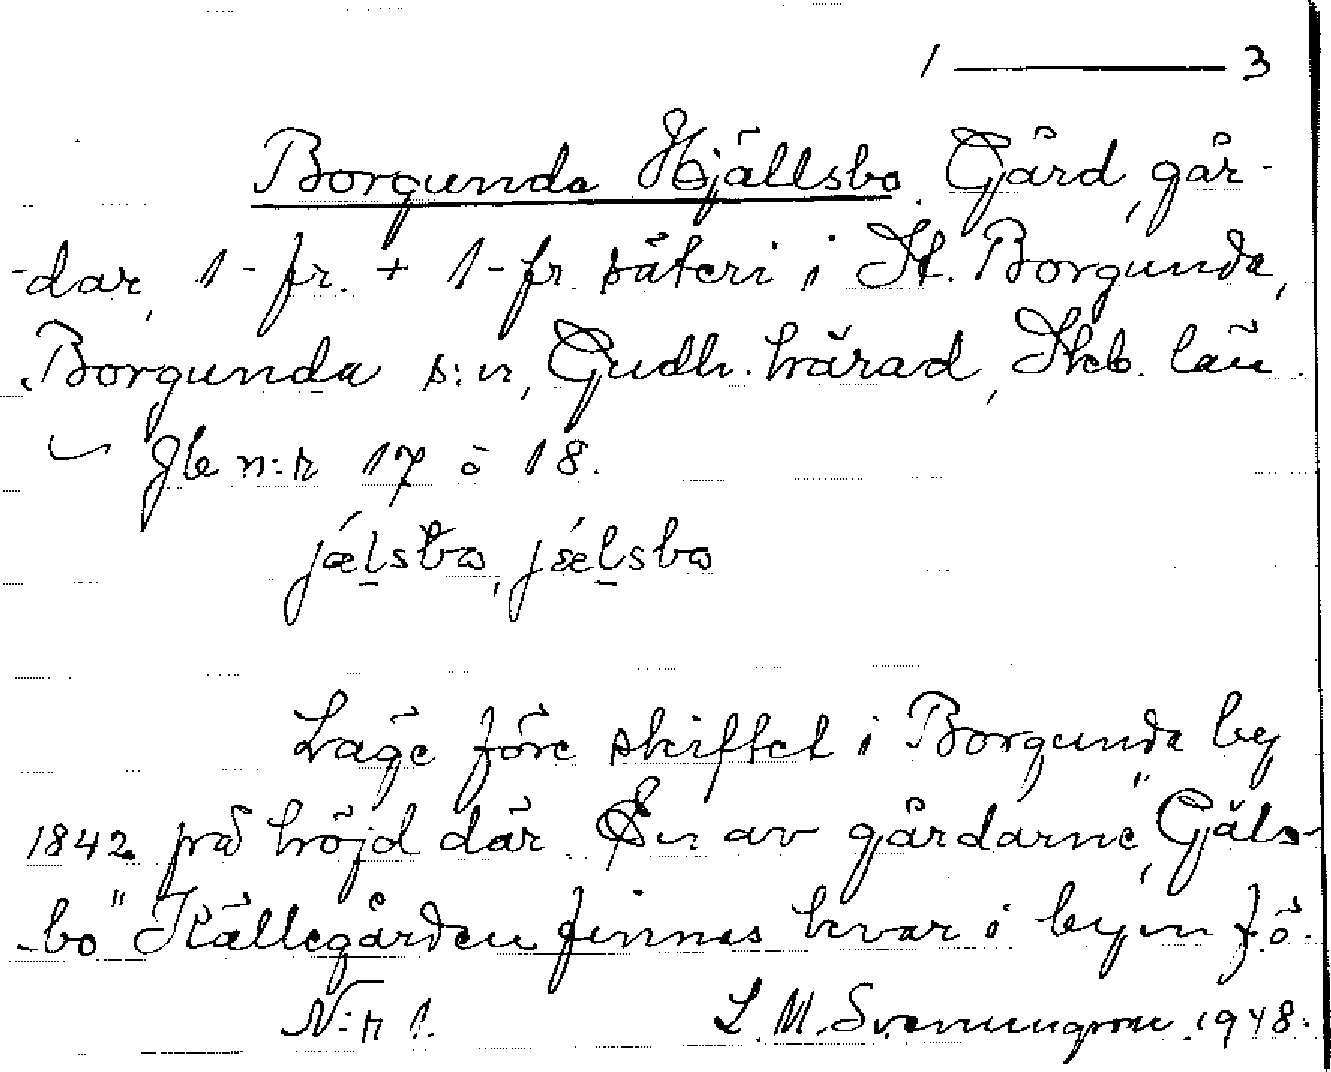 1 ——— 3
Borgunda Hjällsbo. Gård, går-
-dar, 1 - fr. + 1 - fr säteri i St. Borgunda,
Borgunda s:n, Gudh. härad, Skb. län.
Jb n:r 17 o 18.
jǽlsbo, jǽlsbo
Läge före skiftet i Borgunda by
1842 på höjd där. En av gårdarne, "Gäls-
-bo" Källegården finnes kvar i byn fö.
N:r 1. L. M. Svenungsson 1948.